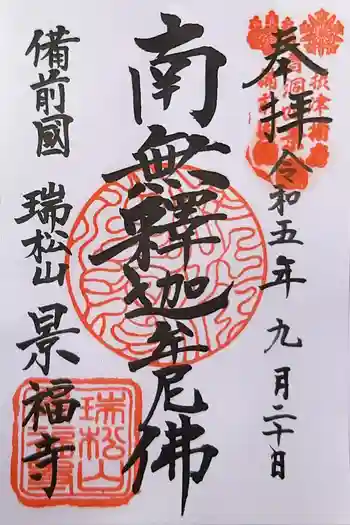 奉拝
令和五年九月二十日
南無釋迦牟尼佛
備前國 瑞松山 景福寺
瑞松山